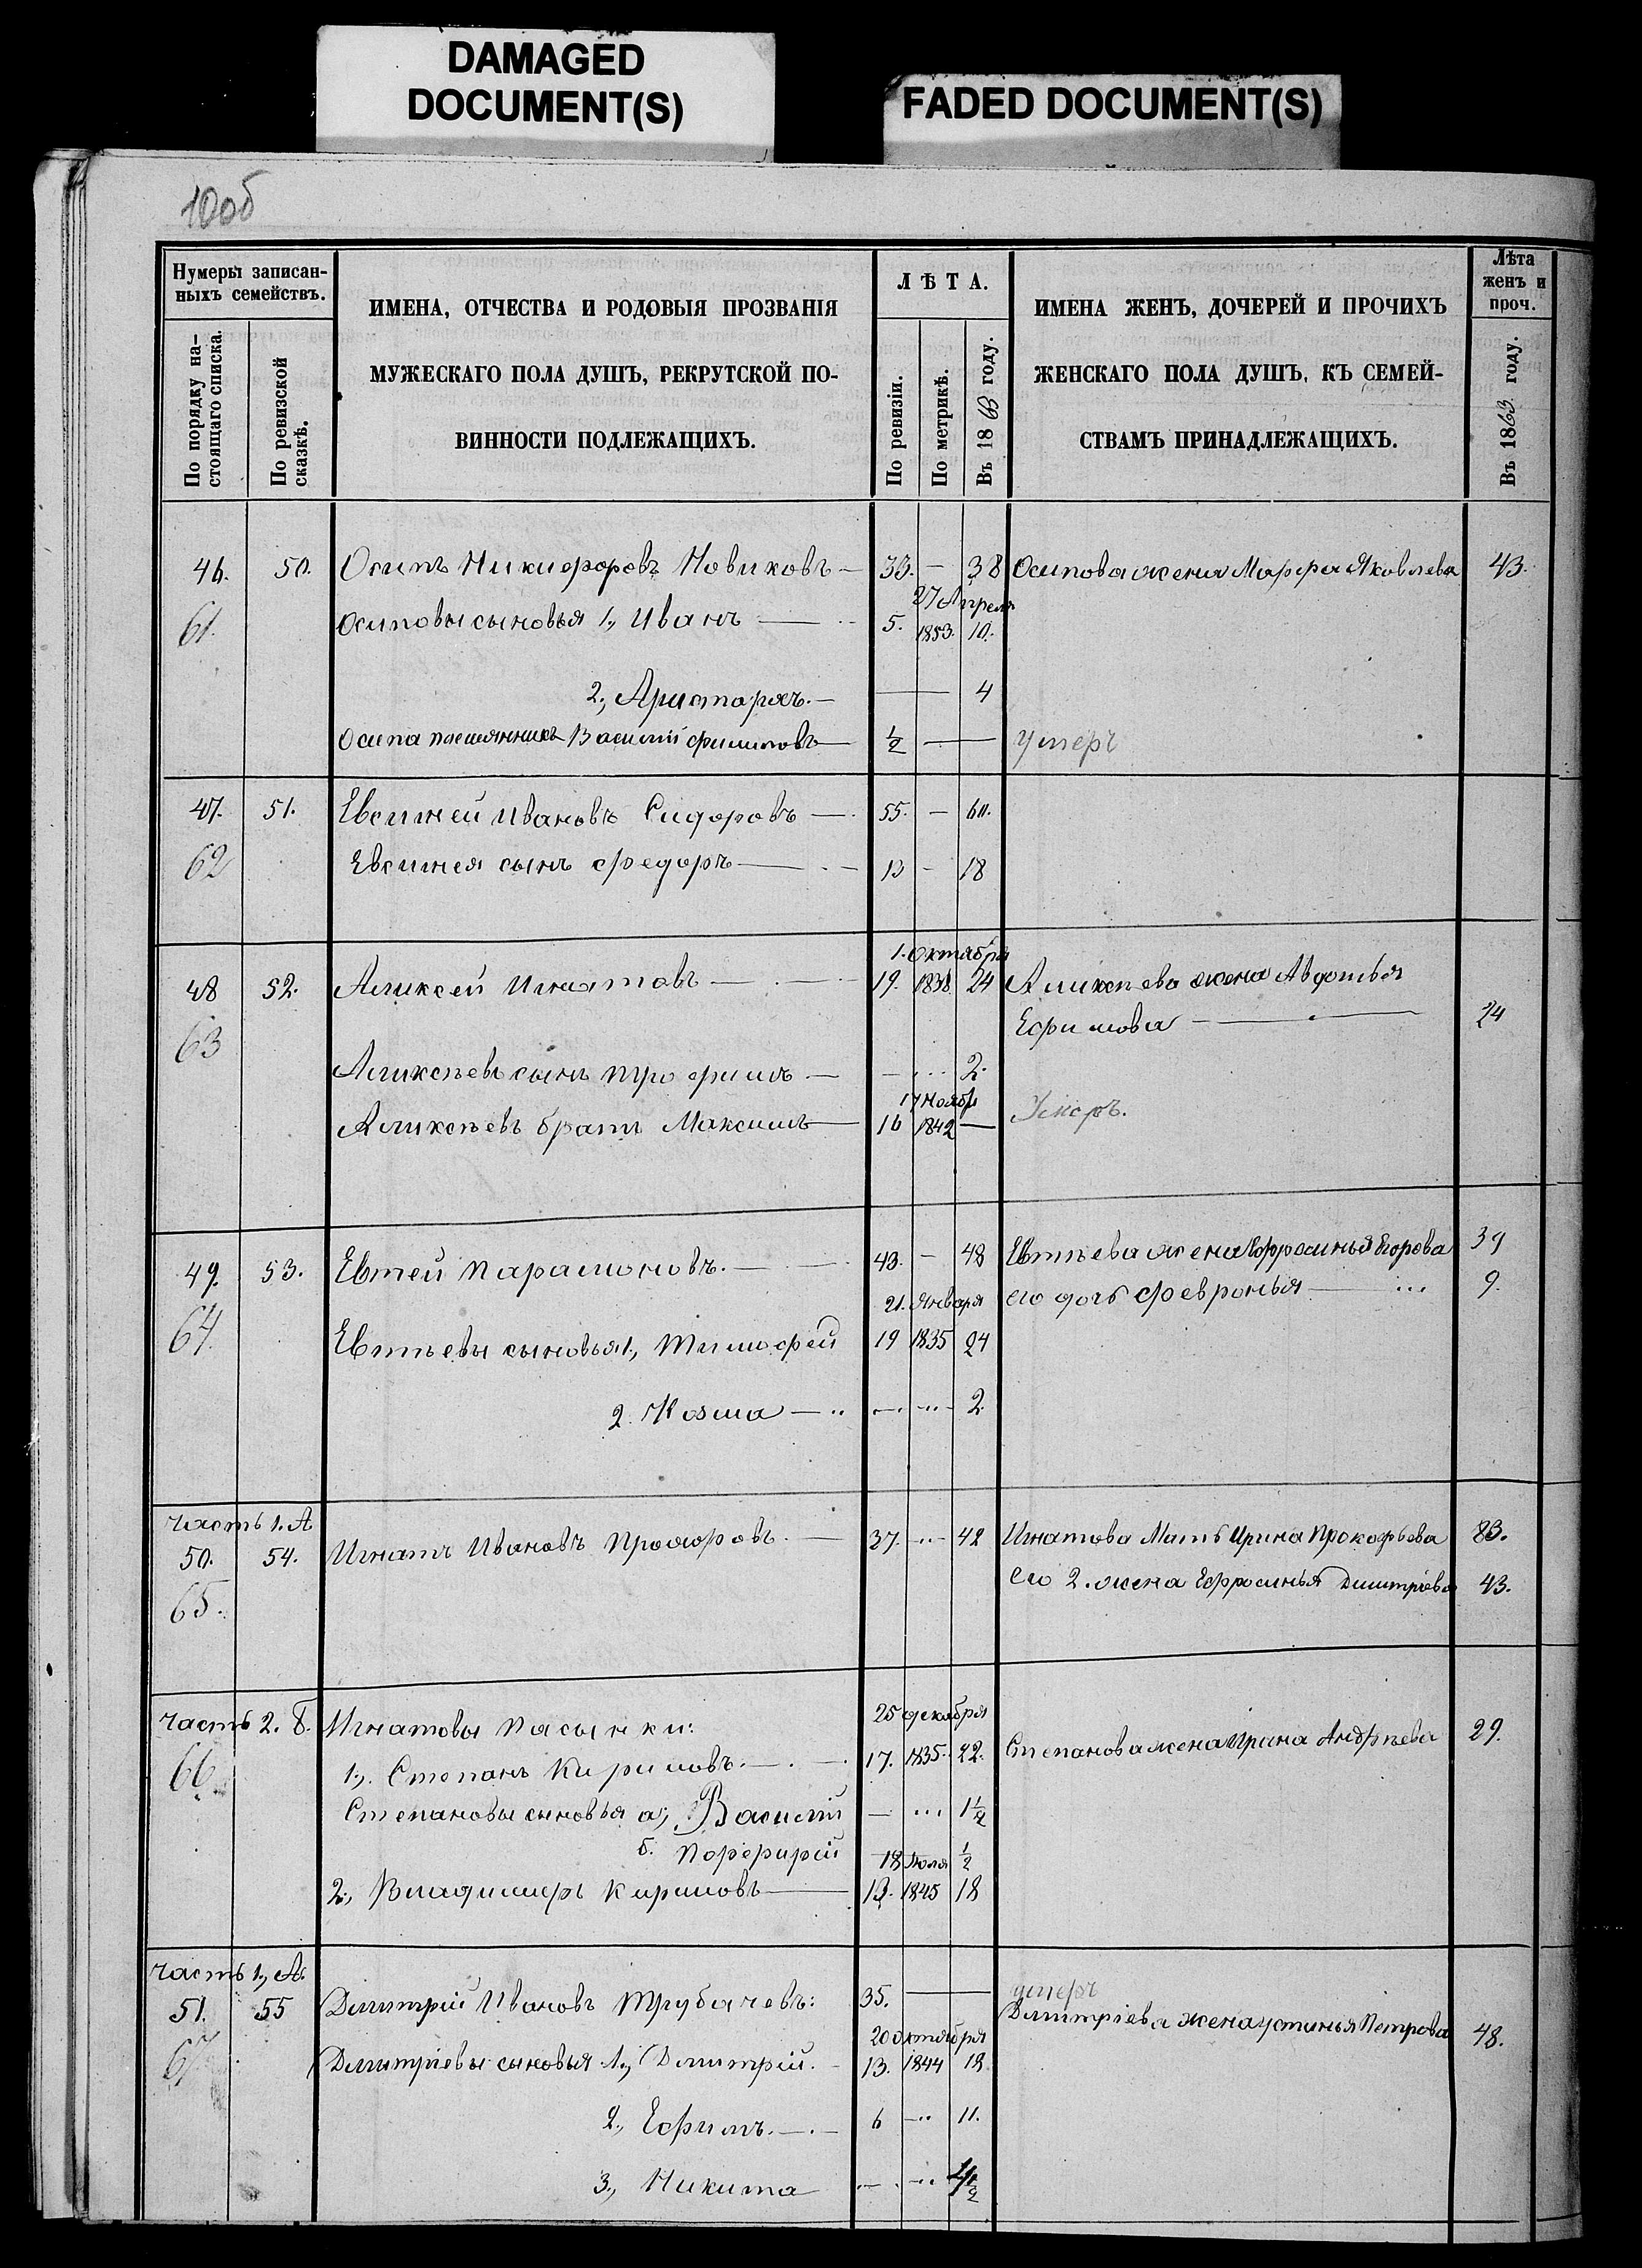 DAMAGED
DOCUMENT(S)
FADED DOCUMENT(S)
10об
Нумеры записан-
ныхъ семействъ.
По порядку на-
стоящаго списка.
По ревизской
сказкѣ.
ИМЕНА, ОТЧЕСТВА И РОДОВЫЯ ПРОЗВАНІЯ
МУЖЕСКАГО ПОЛА ДУШЪ, РЕКРУТСКОЙ ПО-
ВИННОСТИ ПОДЛЕЖАЩИХЪ.
ЛѢТА.
По ревизіи.
По метрикѣ.
Въ 1863 году.
ИМЕНА ЖЕНЪ, ДОЧЕРЕЙ И ПРОЧИХЪ
ЖЕНСКАГО ПОЛА ДУШЪ, КЪ СЕМЕЙ-
СТВАМЪ ПРИНАДЛЕЖАЩИХЪ.
Лѣта
женъ и
проч.
Въ 1863 году.
46. 50. Осипъ Никифоровъ Новиковъ — 33. — 38 Осипова жена Марфа Яковлева 43.
27 Апреля
61. Осиповы сыновья 1., Иванъ — 5. 1853. 10.
2., Аристархъ. — — 4
Осипа племянникъ Василий Филиповъ — 1/2 — умеръ
47. 51. Евсигней Ивановъ Сидоровъ — 55. — 60.
62 Евсигнея сынъ Федоръ — 13 — 18
1. Октября
48 52. Аликсей Игнатовъ — 19. 1838. 24 Аликсѣева жена Авдотья
Ефимова — 24
63
Аликсѣевъ сынъ Трофимъ — — ... 2.
17 Ноября
Аликсѣевъ братъ Максимъ — 16 1842 — Умеръ.
49. 53. Евтей Парамоновъ. — 43. — 48 Евтѣева жена Ефросинья Егорова 39
21. Января его дочь Февронья — ... 9.
64. Евтѣевы сыновья 1., Тимофей 19 1835 24
2. Козма — .. — ... 2.
часть 1. А
50. 54. Игнатъ Ивановъ Прохоровъ. — 37. ... 42 Игнатова Мать Ирина Прокофьева 83.
65. его 2. жена Ефросинья Димитріева 43.
часть 2. Б. Игнатовы Пасынки: 25 декабря
66. 1., Степанъ Кириловъ. — 17. 1835. 22. Степанова жена Ирина Андрѣева 29.
Степановы сыновья а; Василій — ... 1 1/2
б. Порфирій 1/2
18 Июля
2., Владимиръ Кириловъ — 13. 1845 18
часть 1., А.
умеръ
51. 55 Димитрій Ивановъ Трубачевъ: 35. — Димитріева жена Устинья Петрова 48.
20 октября
67 Димитріевы сыновья 1., Димитрій. 13. 1844 18.
2., Ефимъ. — 6 ... 11.
3., Никита — ...